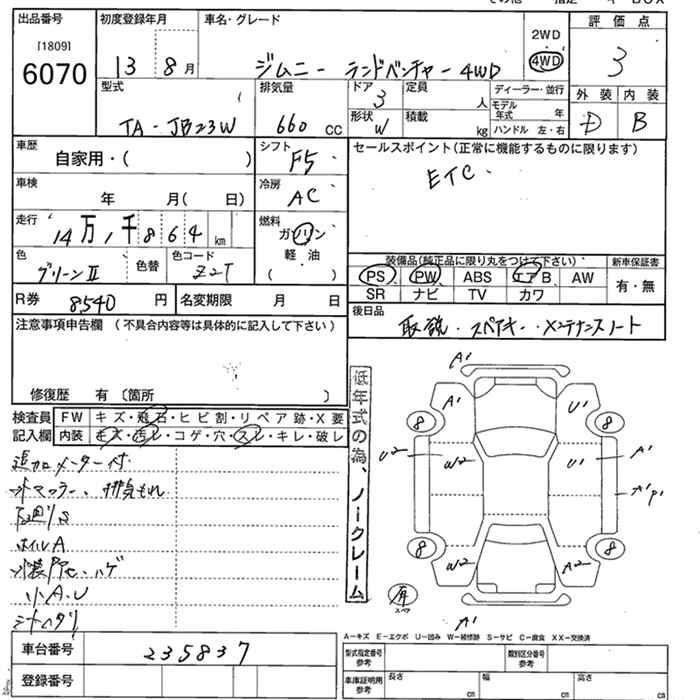 出品番号 初度登録年月 車名・グレード 2WD 評価点
[1809]
6070 13 8月 ジムニー ランドベンチャー 4WD 4WD 3
型式 排気量 ドア 3 定員 人 ディーラー・並行 外装 内装
モデル年式 年
TA-JB23W 660 CC 形状 W 積載 kg ハンドル 左・右 D B
車歴 自家用・( ) シフト F5 セールスポイント(正常に機能するものに限ります)
ETC.
車検 年 月( 日) 冷房 AC
走行 14万1千864 km 燃料 ガソリン
軽油
( )
色 グリーンⅡ 色替 色コード Z2T
装備品(純正品に限り丸をつけて下さい) 新車保証書
PS PW ABS エアB AW 有・無
SR ナビ TV カワ
R券 8540 円 名変期限 月 日
後日品 取説・スペアキー・メンテナンスノート
注意事項申告欄(不具合内容等は具体的に記入して下さい)
修復歴 有〔箇所 〕
検査員 FW キズ・飛石・ヒビ割・リペア跡・X要
記入欄 内装 キズ・汚レ・コゲ・穴・スレ・キレ・破レ
追加メーター付
外マフラー、排気もれ
下廻りS
ホイルA
小A.U
シートヘタリ
低年式の為、ノークレーム
A'
A' U'
8 8
U2 W2 U' A'
A'P'
8 8
W2 A2
有
スペア
A'
A-キズ E-エクボ U-凹み W-補修跡 S-サビ C-腐食 XX-交換済
車台番号 235837
登録番号
型式指定番号 参考 類別区分番号 参考
車庫証明用 参考 長さ cm 幅 cm 高さ cm